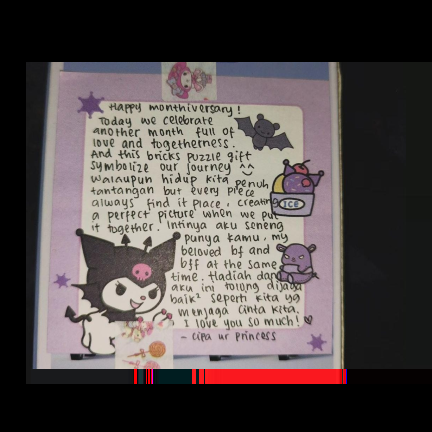 Happy monthiversary!
Today we celebrate
another month full of
love and togetherness.
And this bricks puzzle gift
symbolize our journey ^^
walaupun hidup kita penuh
tantangan but every piece
always find it place, creating
a perfect picture when we put
it together. Intinya aku seneng
punya kamu, my
beloved bf and
bff at the same
time. Hadiah dari
aku ini tolong dijaga
baik² seperti kita yg
menjaga cinta kita.
I love you so much!
- cipa ur princess
ICE